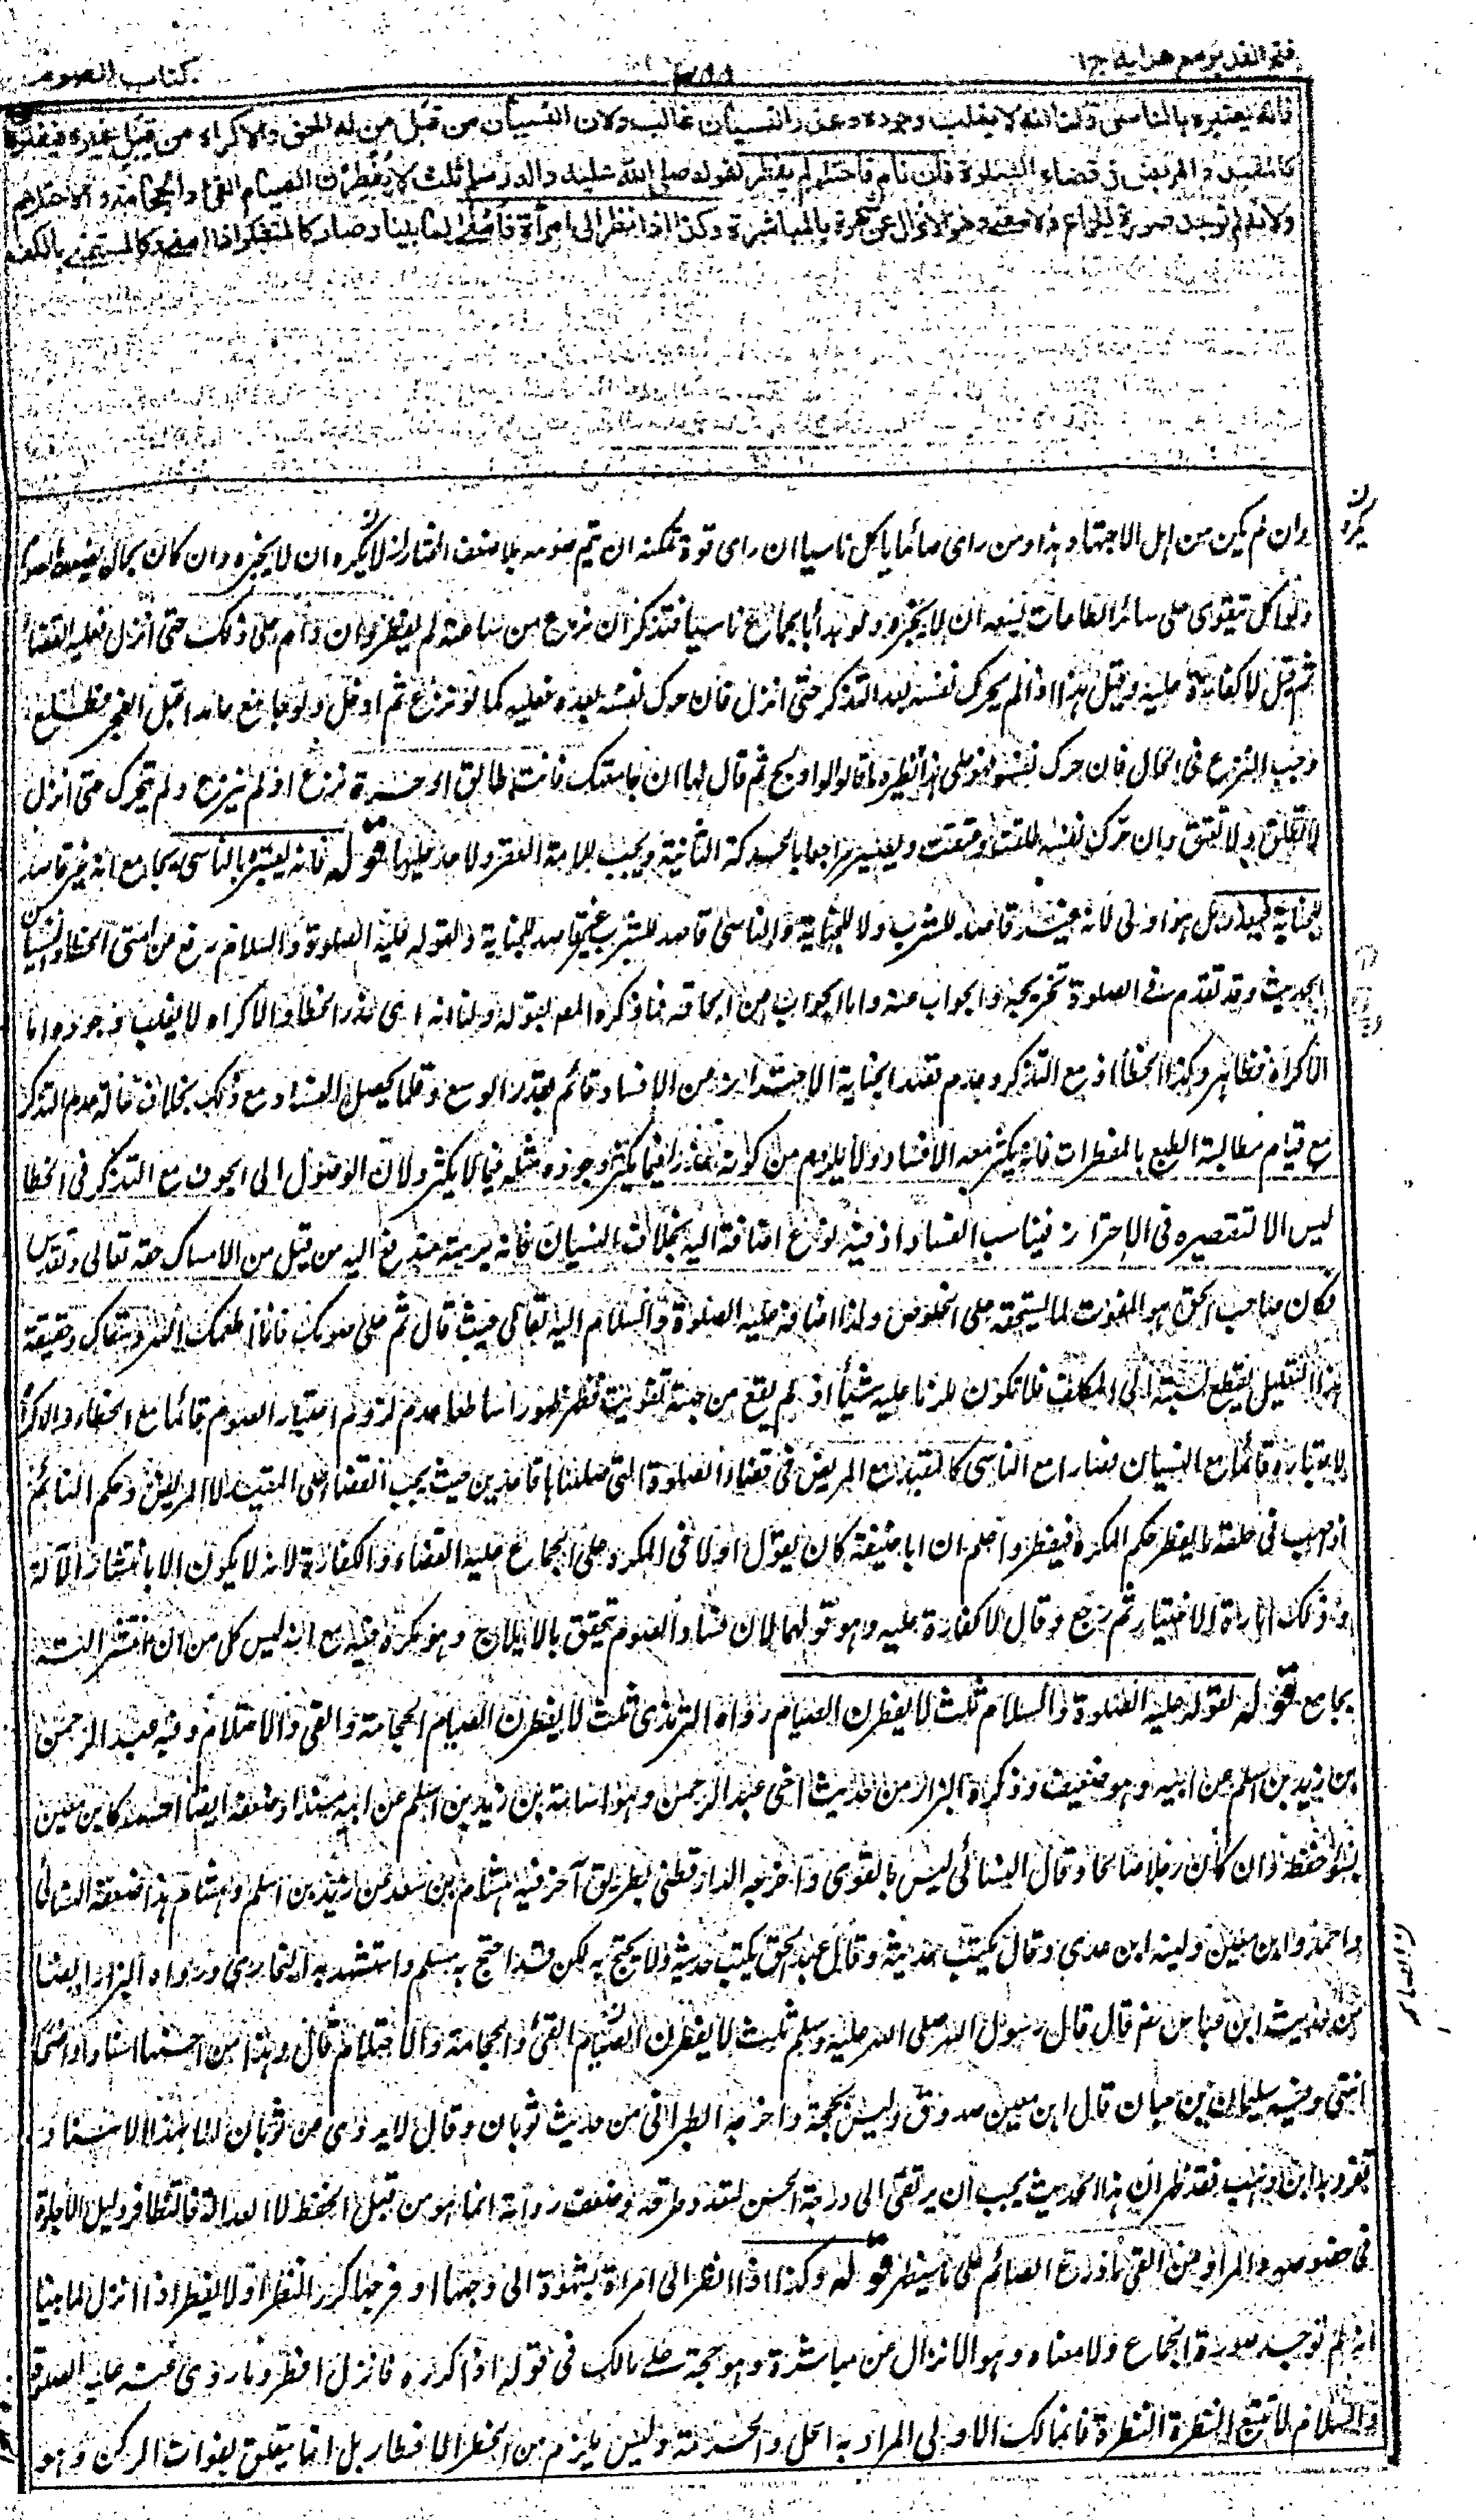 فتح القدير مع هداية ج١
٢٥٥
كتاب الصوم
فانه يعتبره بالناسي ولنا انه لا يغلب وجوده وعذر النسيان غالب ولان النسيان من قبل من له الحق والاكراه من قبل غيره فيفترقان
كالمقيد والمريض في قضاء الصلوة فان نام فاحتلم لم يفطر لقوله صلى الله عليه واله وسلم ثلث لا يفطرن الصيام القئ والحجامة والاحتلام
ولانه لم توجد صورة الجماع ولا معناه وهو الانزال عن شهوة بالمباشرة وكذا اذا نظر الى امرأة فامنى لما بينا وصار كالمتفكر اذا امنى وكالمستمني بالكف
وان لم يكن من اهل الاجتهاد هذا ومن راى صائما ياكل ناسيا ان راى قوة تمكنه ان يتم صومه بلا ضعف المختار انه يكره ان لا يخبره وان كان بحال يضعف بالصوم
ولو اكل يتقوى على سائر الطاعات يسعه ان لا يخبره ولو بدأ بالجماع ناسيا فتذكر ان نزع من ساعته لم يفطر وان دام على ذلك حتى انزل فعليه القضاء
ثم قيل لا كفارة عليه وقيل هذا اذا لم يحرك نفسه بعد التذكر حتى انزل فان حرك نفسه بعده فعليه كما لو نزع ثم ادخل ولو جامع عامدا قبل الفجر فطلع
وجب النزع في الحال فان حرك نفسه فهو على هذا نظيره ما قالوا لو اولج ثم قال لها ان جامعتك فانت طالق او حرة نزع او لم ينزع ولم يتحرك حتى انزل
لا تطلق ولا تعتق وان حرك نفسه طلقت وعتقت ويصير مراجعا بالحركة الثانية ويجب للامة العقر ولا حد عليهما قوله فانه يعتبره بالناسي بجامع انه غير قاصد
للجناية فيعذر بل هو اولى لانه غير قاصد للشرب ولا للجناية والناسي قاصد للشرب غير قاصد للجناية ولقوله عليه الصلوة والسلام رفع عن امتي الخطأ والنسيان
الحديث وقد تقدم في الصلوة تخريجه والجواب عنه واما الجواب عن الحاقه فما ذكره المصـ بقوله ولنا انه اى عذر الخطأ والاكراه لا يغلب وجوده اما
الاكراه فظاهر وكذا الخطأ اذ مع التذكر وعدم قصد الجناية الاحتراز عن الافساد قائم بقدر الوسع وقلما يحصل الفساد مع ذلك بخلاف حالة عدم التذكر
مع قيام مطالبة الطبع بالمفطرات فانه يكثر معه الافساد ولا يلزم من كونه عذرا فيما يكثر وجوده مثله فيما لا يكثر ولان الوصول الى الجوف مع التذكر في الخطأ
ليس الا لتقصيره في الاحتراز فيناسب الفساد اذ فيه نوع اضافة اليه بخلاف النسيان فانه برمته مندفع اليه من قبل من الامساك حقه تعالى وتقدس
فكان صاحب الحق هو المفوت لما يستحقه على الخلوص ولذا اضافه عليه الصلوة والسلام اليه تعالى حيث قال ثم على صومك فانما اطعمك الله وسقاك وحقيقة
هذا التعليل يقطع نسبته الى المكلف فلا تكون ملزما عليه شيئا اذ لم يقع من جهته تفويت فظهر ظهورا ساطعا عدم لزوم اعتبار الصوم قائما مع الخطاء والاكراه
لاعتباره قائما مع النسيان فصارا مع الناسي كالمقيد مع المريض في قضاء الصلوة التي صلياها قاعدين حيث يجب القضاء على المقيد لا المريض وحكم النائم
اذ صب في حلقه ما يفطر حكم المكره فيفطر واعلم ان ابا حنيفة كان يقول اولا في المكره على الجماع عليه القضاء والكفارة لانه لا يكون الا بانتشار الآلة
وذلك امارة الاختيار ثم رجع وقال لا كفارة عليه وهو قولهما لان فساد الصوم تحقق بالايلاج وهو مكره فيه مع انه ليس كل من انتشر آلته
يجامع قوله لقوله عليه الصلوة والسلام ثلث لا يفطرن الصيام رواه الترمذي ثلث لا يفطرن الصيام الحجامة والقئ والاحتلام وفيه عبد الرحمن
بن زيد بن اسلم عن ابيه وهو ضعيف وذكره البزار من حديث اخي عبد الرحمن وهو اسامة بن زيد بن اسلم عن ابيه مسندا وضعفه ايضا احمد كابن معين
بسوء حفظه وان كان رجلا صالحا وقال النسائي ليس بالقوى واخرجه الدارقطني بطريق آخر فيه هشام بن سعد عن زيد بن اسلم وهشام هذا ضعفه النسائي
واحمد وابن معين ولينه ابن عدى وقال يكتب حديثه وقال عبد الحق يكتب حديثه ولا يحتج به لكن قد احتج به مسلم واستشهد به البخاري ورواه البزار ايضا
من حديث ابن عباس رضـ قال قال رسول الله صلى الله عليه وسلم ثلث لا يفطرن الصيام القئ والحجامة والاحتلام قال وهذا من احسنها اسنادا واصحها
انتهى وفيه سليمان بن حيان قال ابن معين صدوق وليس بحجة واخرجه الطبراني من حديث ثوبان وقال لا يروى عن ثوبان الا بهذا الاسناد
تفرد به ابن وهب فقد ظهر ان هذا الحديث يجب ان يرتقى الى درجة الحسن لتعدد طرقه وضعف رواته انما هو من قبل الحفظ لا العدالة فالتظافر دليل الاجادة
في خصوصه والمراد من القئ ما ذرع الصائم على ما سيظهر قوله وكذا اذا نظر الى امراة بشهوة الى وجهها او فرجها كرر النظر او لا يفطر اذا انزل لما بينا
انه لم توجد صورة الجماع ولا معناه وهو الانزال عن مباشرة وهو حجة على مالك في قوله اذا كرره فانزل افطر وما روى عنه عليه الصلوة
والسلام لا تتبع النظرة النظرة فانما لك الاولى المراد به الحل والحرمة وليس يلزم من الحظر الافطار بل انما يتعلق بفوات الركن وهو